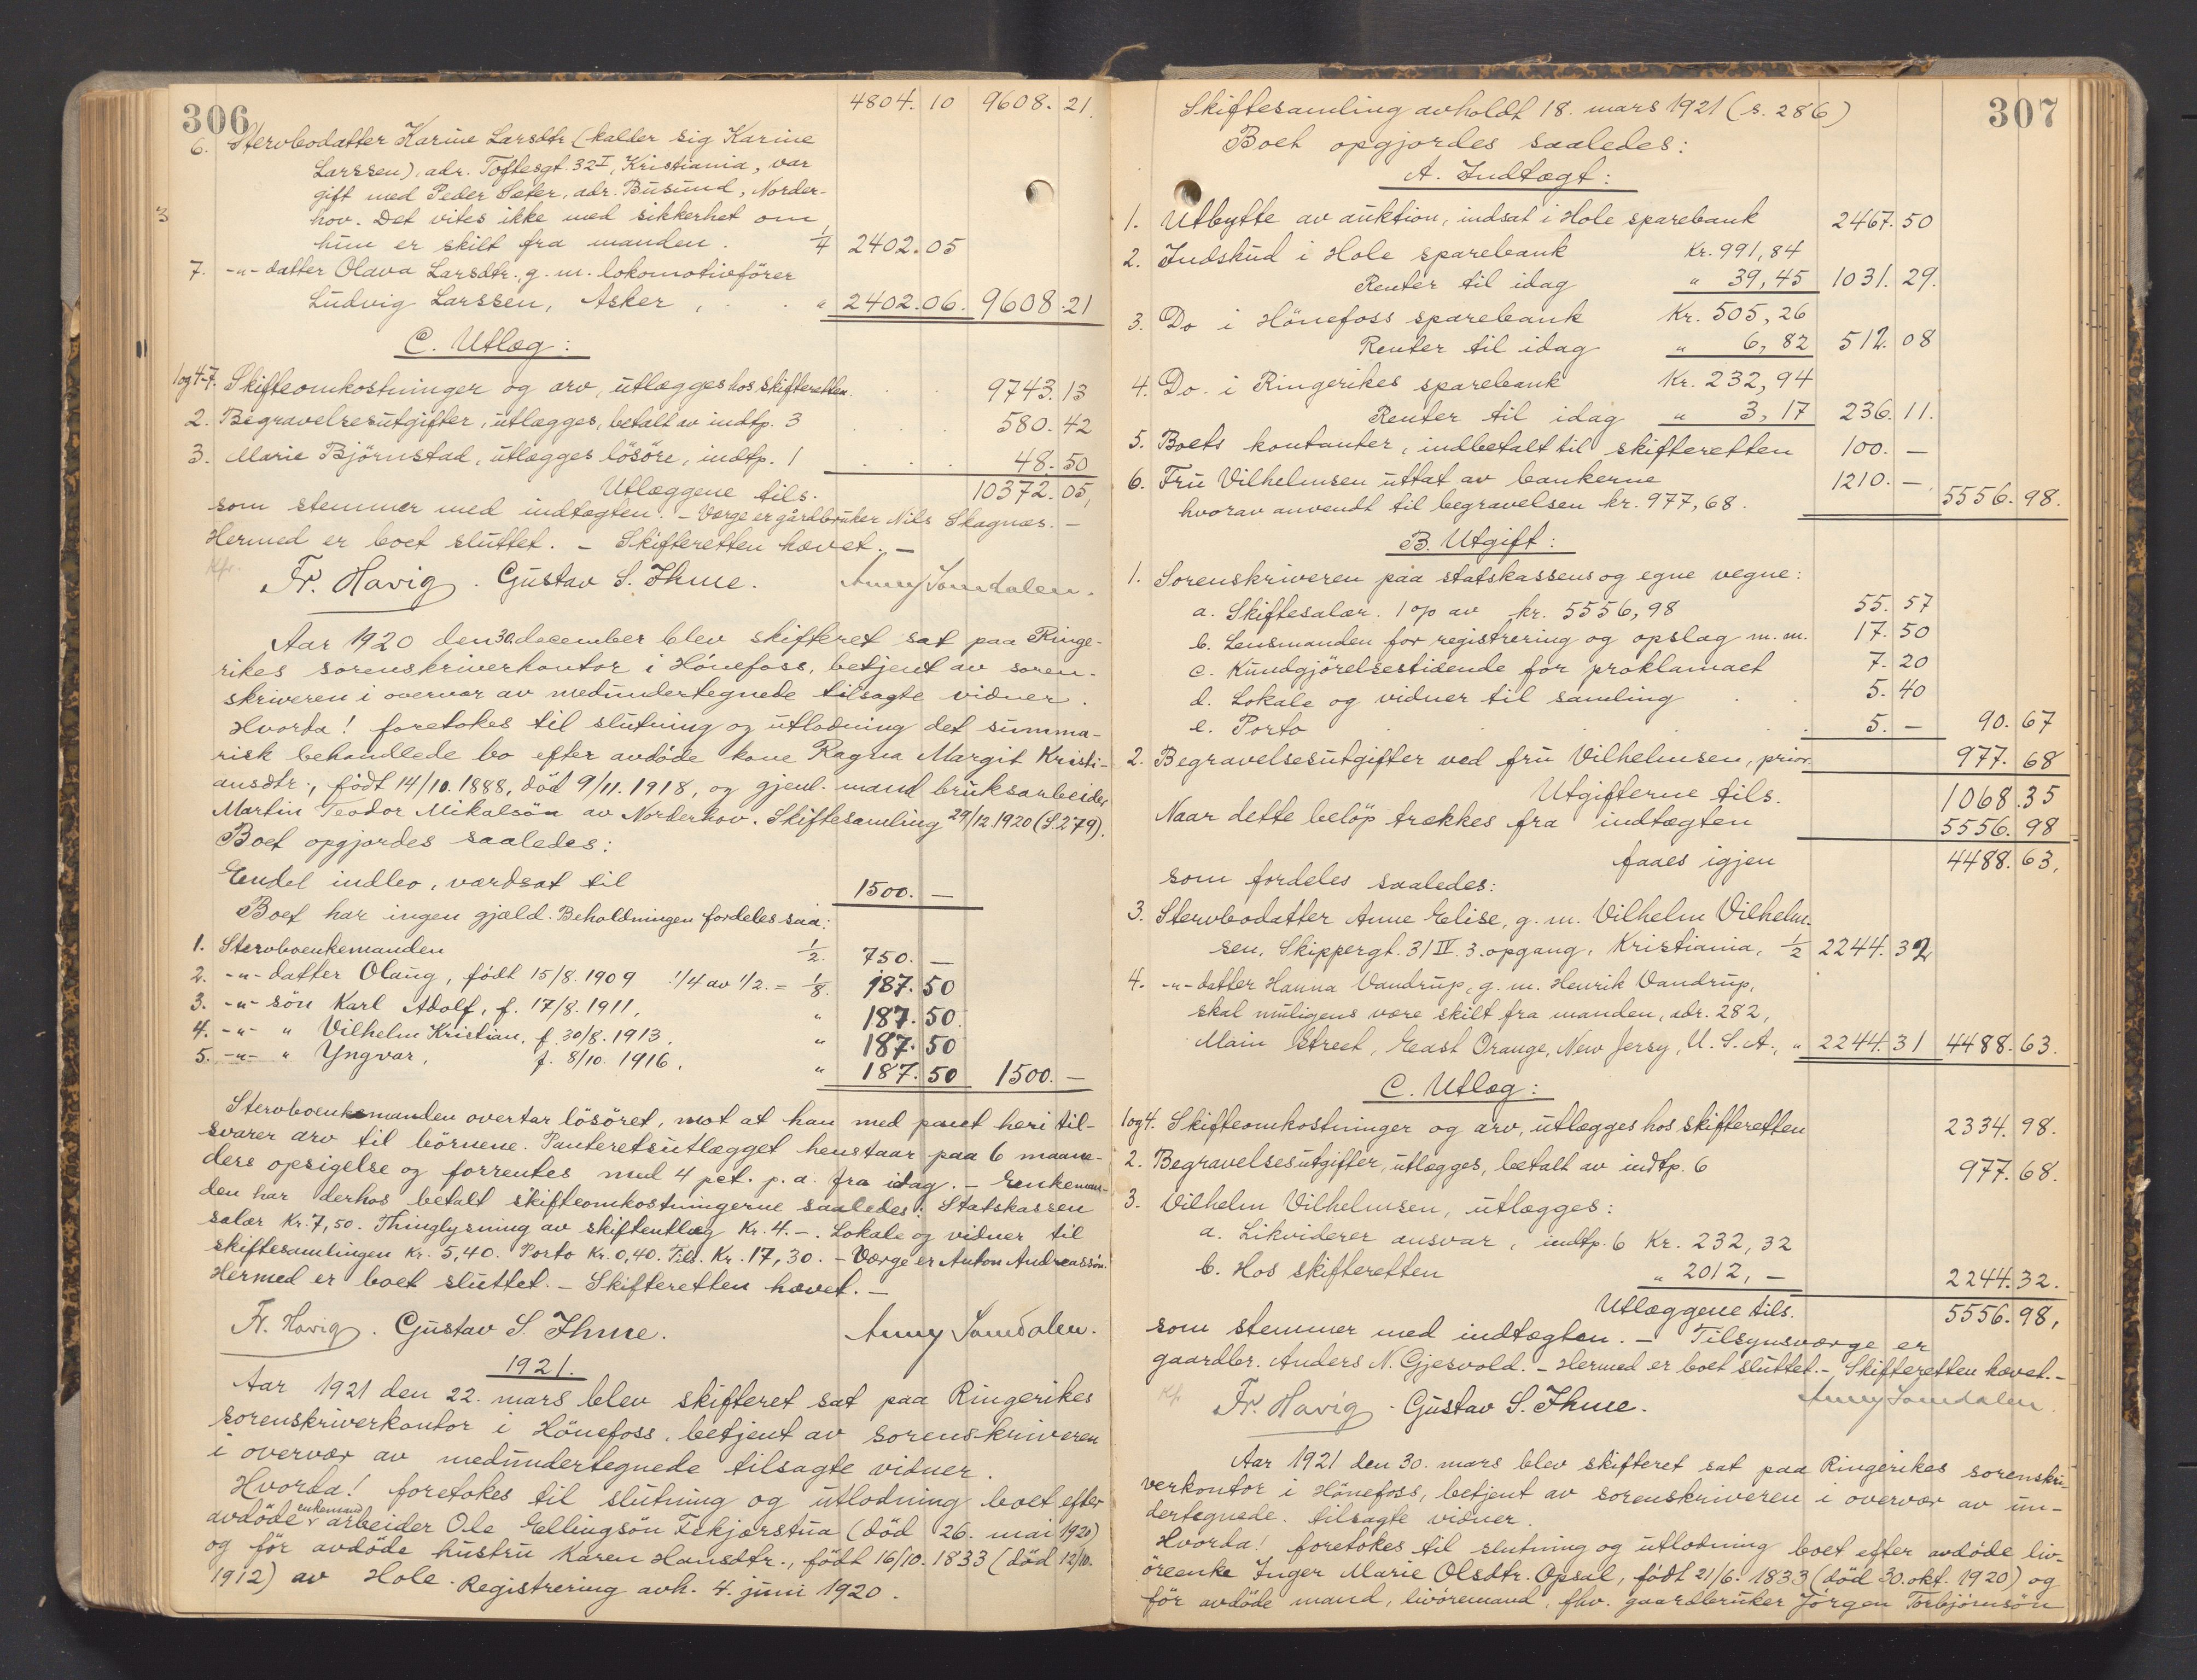 306
4804. 10 9608. 21.
6. Stervbodatter Karine Larsdtr (kalder sig Karine
Larssen), adr. Toftesgt. 32 I, Kristiania, var
gift med Peder Sæter, adr. Busund, Norder-
hov. Det vites ikke med sikkerhet om
hun er skilt fra manden. 1/4 2402.05
7. -"- datter Olava Larsdtr., g. m. lokomotivförer
Ludvig Larssen, Asker, " 2402.06. 9608.21
C. Utlæg:
1 og 4-7. Skifteomkostninger og arv, utlægges hos skifteretten 9743.13
2. Begravelsesutgifter, utlægges, betalt av indtp. 3 580.42
3. Marie Björnstad, utlægges lösöre, indtp. 1 48.50
Utlæggene tils. 10372.05,
som stemmer med indtægten. - Værge er gårdbruker Nils Skagnæs. -
Hermed er boet sluttet. - Skifteretten hævet. -
Kfr.
Fr. Havig. Gustav S. Ihme. Anny Somdalen.
Aar 1920 den 30. december blev skifteret sat paa Ringe-
rikes sorenskriverkontor i Hönefoss, betjent av soren-
skriveren i overvær av medundertegnede tilsagte vidner.
Hvorda! foretokes til slutning og utlodning det summa-
risk behandlede bo efter avdöde kone Ragna Margit Kristi-
ansdtr., født 14/10. 1888, död 9/11. 1918, og gjenl. mand bruksarbeider
Martin Teodor Mikalsön av Norderhov. Skiftesamling 29/12 1920 (S. 279).
Boet opgjordes saaledes:
Endel indbo, værdsat til 1500. -
Boet har ingen gjæld. Beholdningen fordeles saa:
1. Stervboenkemanden 1/2. 750. -
2. -"- datter Olaug, født 15/8. 1909 1/4 av 1/2. = 1/8. 187.50
3. -"- sön Karl Adolf, f. 17/8. 1911, " 187.50.
4. -"- " Vilhelm Kristian, f. 30/8. 1913, " 187.50
5. -"- " Yngvar, f. 8/10. 1916, " 187.50 1500. -
Stervboenkemanden overtar lösöret, mot at han med pant heri til-
svarer arv til börnene. Panteretsutlægget henstaar paa 6 maane-
ders opsigelse og forrentes med 4 pct. p. a. fra idag. - Enkeman-
den har derhos betalt skifteomkostningerne saaledes: Statskassen
salær Kr. 7,50. Thinglysning av skifteutlæg Kr. 4. -. Lokale og vidner til
skiftesamlingen Kr. 5,40. Porto Kr. 0,40. Tils. Kr. 17,30. - Værge er Anton Andreassön.
Hermed er boet sluttet. - Skifteretten hævet. -
Fr. Havig. Gustav S. Ihme. Anny Somdalen.
1921.
Aar 1921 den 22. mars blev skifteret sat paa Ringerikes
sorenskriverkontor i Hönefoss, betjent av sorenskriveren
i overvær av medundertegnede tilsagte vidner.
Hvorda! foretokes til slutning og utlodning boet efter
avdöde enkemand arbeider Ole Ellingsön Fekjærstua (död 26. mai 1920)
og för avdöde hustru Karen Hansdtr., född 16/10. 1833 (död 12/10.
1912) av Hole. Registrering avh. 4. juni 1920.
307
Skiftesamling avholdt 18. mars 1921 (s. 286)
Boet opgjordes saaledes:
A. Indtægt:
1. Utbytte av auktion, indsat i Hole sparebank 2467.50
2. Indskud i Hole sparebank Kr. 991,84
Renter til idag " 39,45 1031.29.
3. Do i Hönefoss sparebank Kr. 505,26
Renter til idag " 6,82 512.08
4. Do. i Ringerikes sparebank Kr. 232,94
Renter til idag " 3,17 236.11.
5. Boets kontanter, indbetalt til skifteretten 100. -
6. Fru Vilhelmsen uttat av bankerne 1210. - 5556.98.
hvorav anvendt til begravelsen kr. 977,68.
B. Utgift:
1. Sorenskriveren paa statskassens og egne vegne:
a. Skiftesalær. 1 % av kr. 5556,98 55.57
b. Lensmanden for registrering og opslag m. m. 17.50
c. Kundgjörelsestidende for proklamaet 7.20
d. Lokale og vidner til samling 5.40
e. Porto 5. - 90.67
2. Begravelsesutgifter ved fru Vilhelmsen, prior. 977.68
Utgifterne tils. 1068.35
Naar dette belöp trækkes fra indtægten 5556.98
faaes igjen 4488.63,
som fordeles saaledes:
3. Stervbodatter Anne Elise, g. m. Vilhelm Vilhelm-
sen, Skippergt. 31 IV. 3. opgang, Kristiania, 1/2 2244.32
4. -"- datter Hanna Vandrup, g. m. Henrik Vandrup,
skal muligens være skilt fra manden, adr. 282,
Main Street, East Orange, New Jersy, U. S. A., " 2244.31 4488.63.
C. Utlæg:
1 og 4. Skifteomkostninger og arv, utlægges hos skifteretten 2334.98.
2. Begravelsesutgifter, utlægges, betalt av indtp. 6 977.68.
3. Vilhelm Vilhelmsen, utlægges:
a. Likviderer ansvar, indtp. 6 Kr. 232,32
b. Hos skifteretten " 2012, - 2244.32.
Utlæggene tils. 5556.98,
som stemmer med indtægten. - Tilsynsværge er
gaardbr. Anders N. Gjesvold. - Hermed er boet sluttet. - Skifteretten hævet. -
Kfr
Fr. Havig. Gustav S. Ihme. Anny Somdalen.
Aar 1921 den 30. mars blev skifteret sat paa Ringerikes sorenskri-
verkontor i Hönefoss, betjent av sorenskriveren i overvær av un-
dertegnede tilsagte vidner.
Hvorda! foretokes til slutning og utlodning boet efter avdöde liv-
öreenke Inger Marie Olsdtr. Opsal, født 21/6. 1833 (död 30. okt. 1920) og
för avdöde mand, livöremand, fhv. gaardbruker Jörgen Torbjörnsön